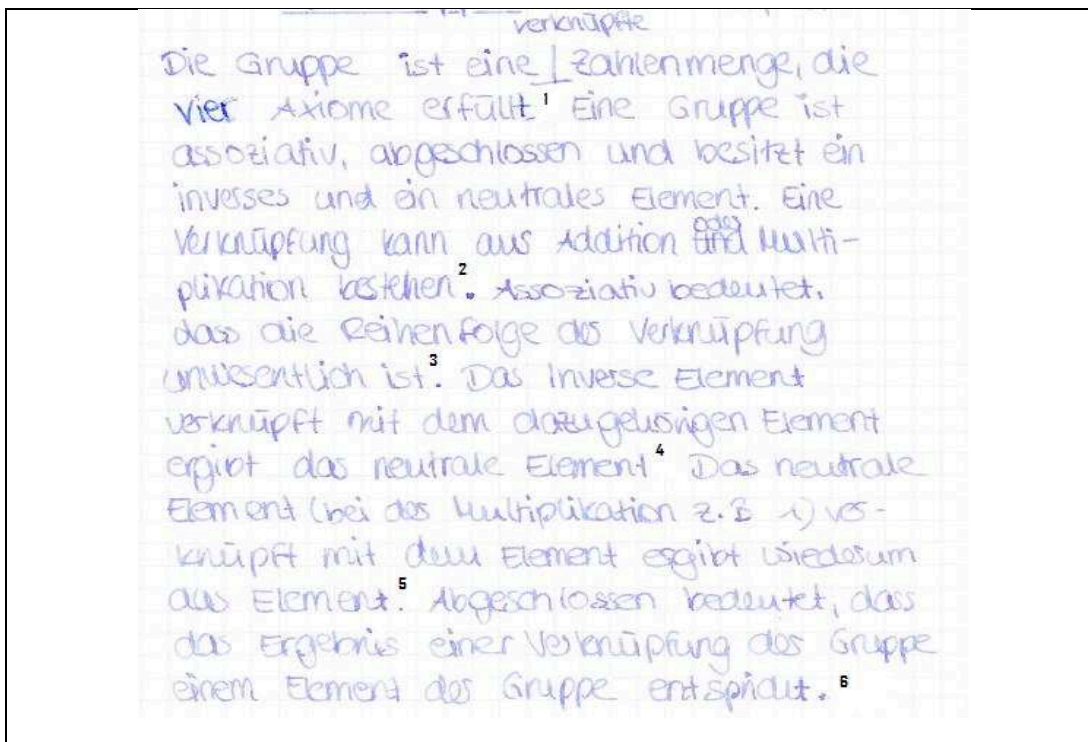 verknüpfte
Die Gruppe ist eine Zahlenmenge, die
vier Axiome erfüllt 1 Eine Gruppe ist
assoziativ, abgeschlossen und besitzt ein
inverses und ein neutrales Element. Eine
Verknüpfung kann aus Addition und oder Multi-
plikation bestehen 2. Assoziativ bedeutet,
dass die Reihenfolge der Verknüpfung
unwesentlich ist 3. Das inverse Element
verknüpft mit dem dazugehörigen Element
ergibt das neutrale Element 4 Das neutrale
Element (bei der Multiplikation z.B 1) ver-
knüpft mit dem Element ergibt wiederum
das Element. 5 Abgeschlossen bedeutet, dass
das Ergebnis einer Verknüpfung der Gruppe
einem Element der Gruppe entspricht. 6